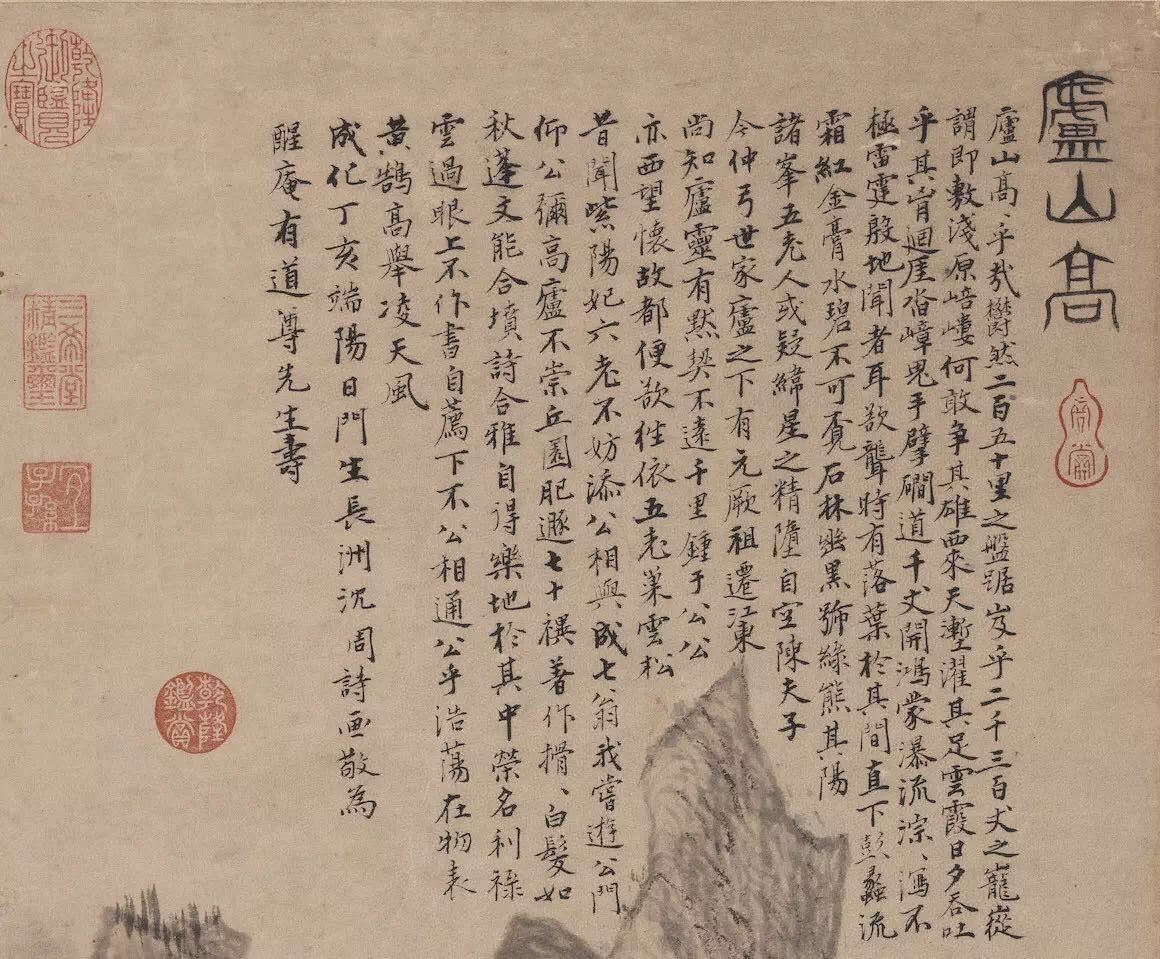 廬山高
廬山高、乎哉欝然二百五十里之盤踞岌乎二千三百丈之巃嵸
謂即敷淺原嵱嶁何敢争其雄西來天塹濯其足雲霞日夕吞吐
乎其胷迴厓沓嶂鬼手擘磵道千丈開鴻蒙瀑流淙、瀉不
極雷霆殷地聞者耳欲聾時有落葉於其間直下彭蠡流
霜紅金膏水碧不可覔石林幽黒號綠熊其陽
諸峯五老人或疑緯星之精墮自空陳夫子
今仲弓世家廬之下有元厥祖遷江東
尚知廬靈有默契不遠千里鍾于公公
亦西望懷故都便欲往依五老巢雲松
昔聞紫陽妃六老不妨添公相與成七翁我嘗遊公門
仰公彌高廬不崇丘園肥遯七十禩著作搰、白髮如
秋蓬文能合墳詩合雅自得樂地於其中榮名利祿
雲過眼上不作書自薦下不公相通公乎浩蕩在物表
黄鵠高舉凌天風
成化丁亥端陽日門生長洲沈周詩画敬為
醒庵有道尊先生壽
乾隆御覽之寶
三希堂精鑑璽
宜子孫
乾隆鑑賞